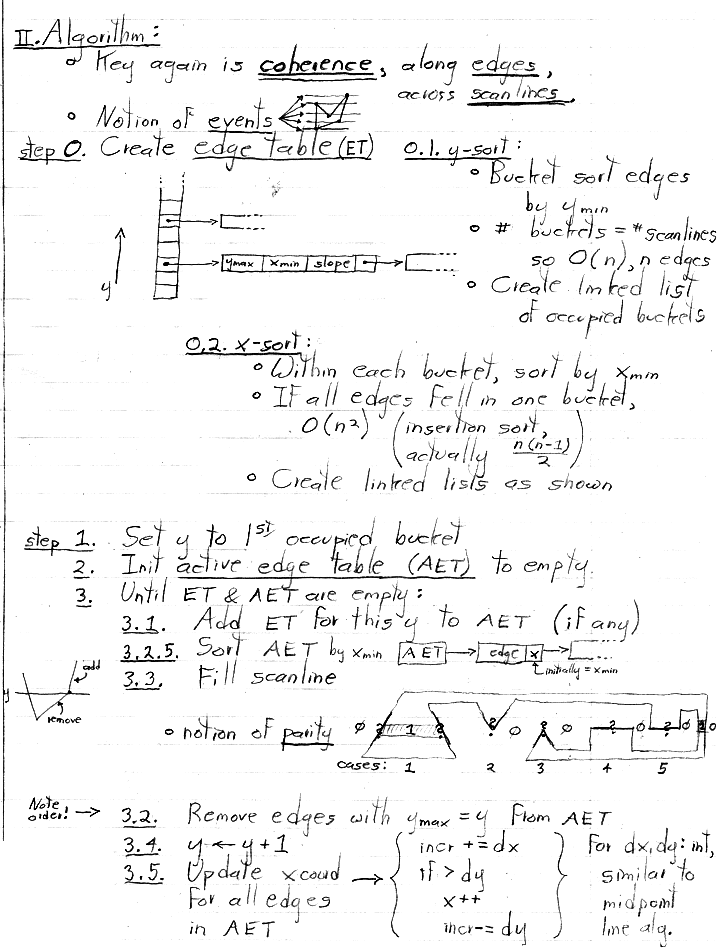 II. Algorithm:
o Key again is coherence, along edges,
across scanlines.
o Notion of events
step 0. Create edge table (ET)
0.1. y-sort:
o Bucket sort edges
by ymin
o # buckets = # scanlines
so O(n), n edges
o Create linked list
of occupied buckets
ymax xmin slope
y
0.2. x-sort:
o Within each bucket, sort by xmin
o If all edges fell in one bucket,
O(n²) (insertion sort,
actually n(n-1)/2)
o Create linked lists as shown
step 1. Set y to 1st occupied bucket
2. Init active edge table (AET) to empty.
3. Until ET & AET are empty:
3.1. Add ET for this y to AET (if any)
3.2.5. Sort AET by xmin
AET edge x
initially = xmin
3.3. Fill scanline
y add
remove
o notion of parity
0 2 1 2 2 0 2 0 2 0 2 0 0
cases: 1 2 3 4 5
Note order! → 3.2. Remove edges with ymax = y from AET
3.4. y ← y + 1
3.5. Update x coord
for all edges
in AET
incr += dx
if > dy
x++
incr -= dy
For dx, dy: int,
similar to
midpoint
line alg.